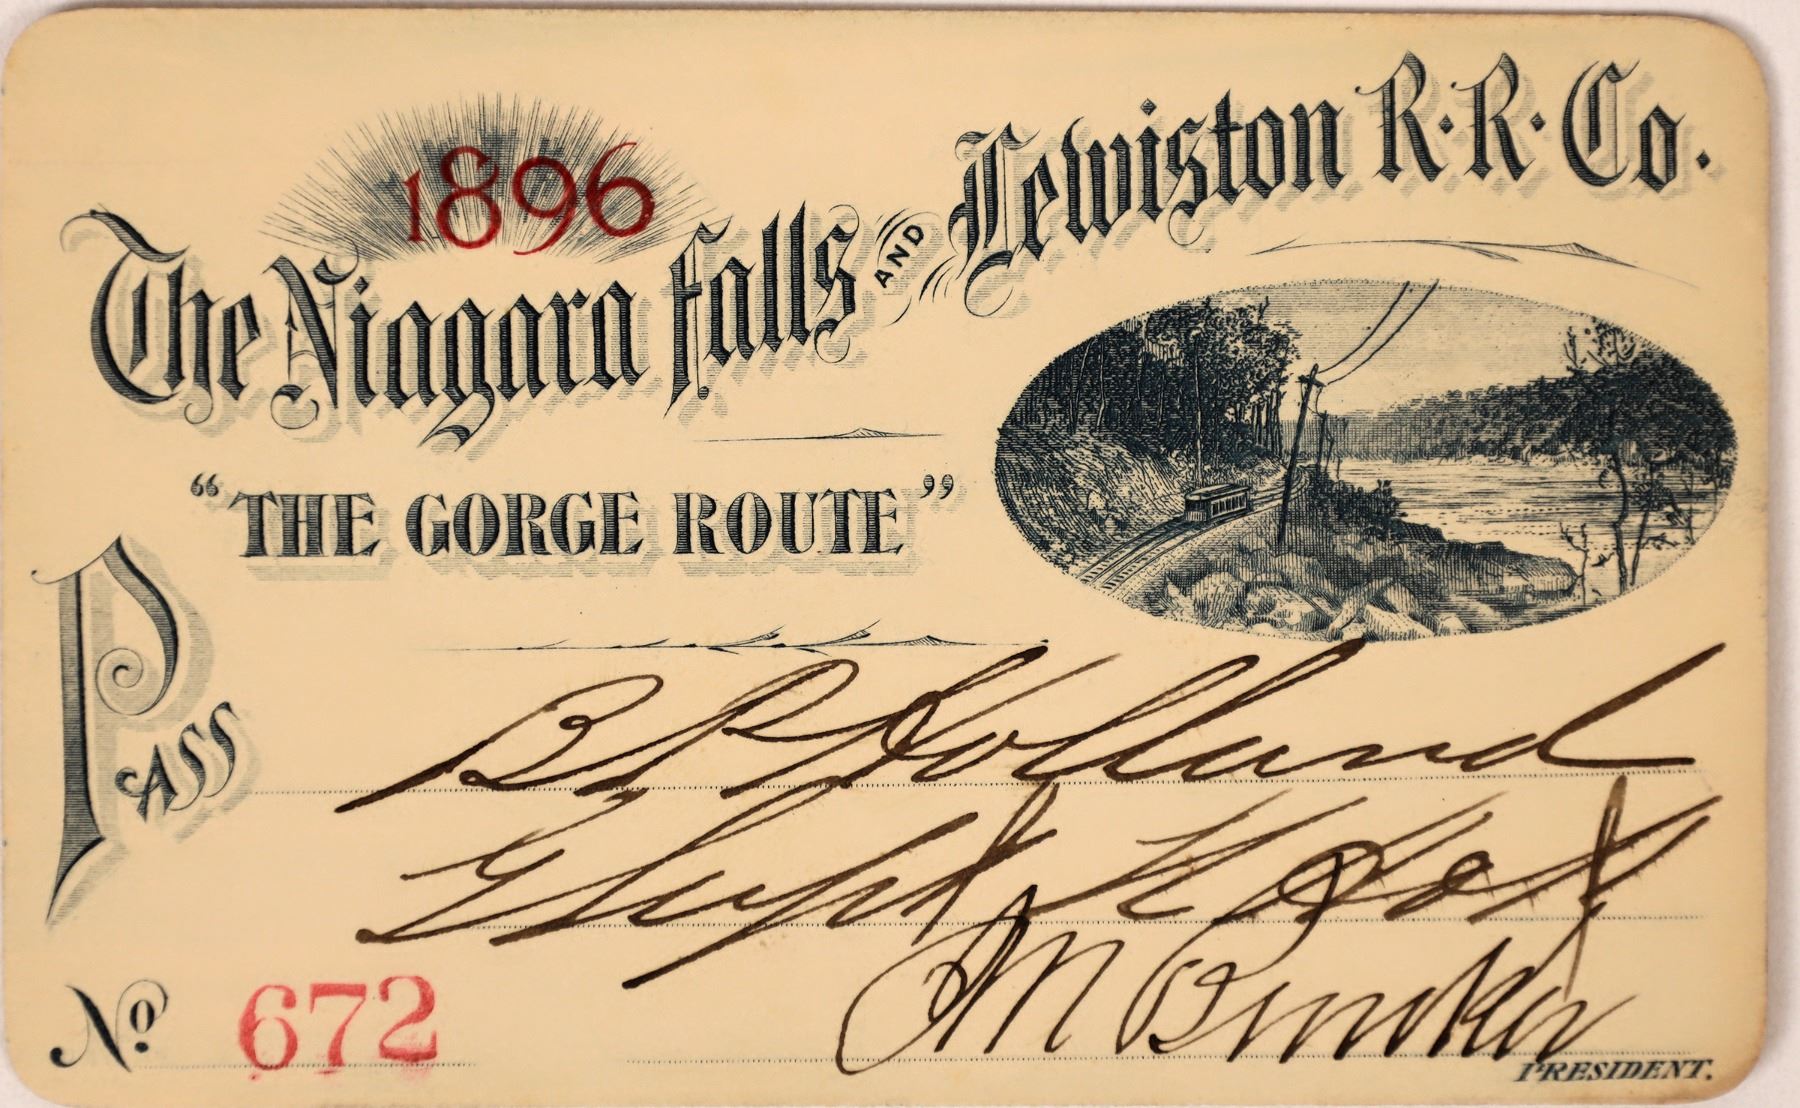 1896
The Niagara Falls AND Lewiston R.R. Co.
"THE GORGE ROUTE"
PASS B P Holland
No. 672
PRESIDENT.